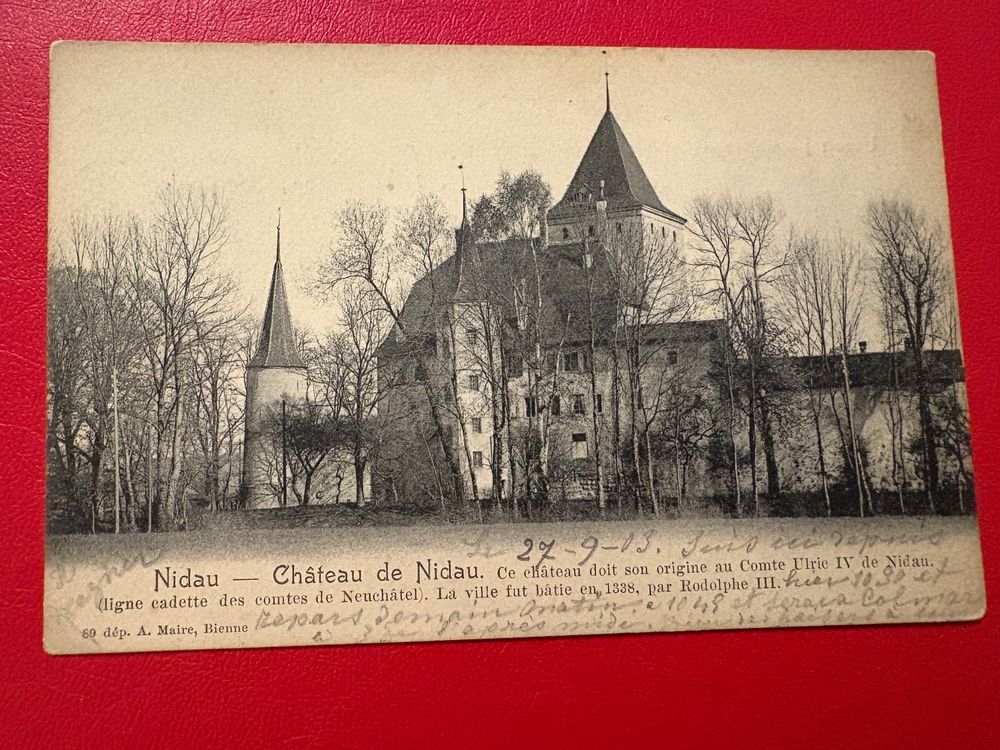 Le 27-9-03. Suis ici depuis
Nidau — Château de Nidau. Ce château doit son origine au Comte Ulric IV de Nidau.
(ligne cadette des comtes de Neuchâtel). La ville fut bâtie en 1338, par Rodolphe III. hier 10 30 et
69 dép. A. Maire, Bienne repars demain matin à 10 45 et serai à Colmar
après midi.